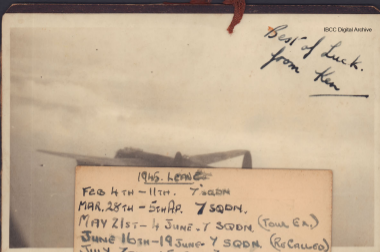 IBCC Digital Archive
Best of Luck.
from Ken
1945. LEAVE
FEB 4TH - 11TH. 7 SQDN
MAR. 28TH - 5TH AP. 7 SQDN.
MAY 21ST - 4 JUNE. 7 SQDN (TOUR EX.)
JUNE 16TH - 19 JUNE - 7 SQDN (RECALLED)